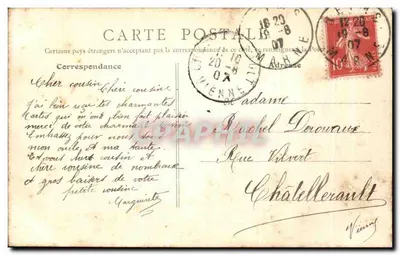 CARTE POSTALE
Certains pays étrangers n'acceptant pas la correspondance de ce côté, se renseigner
Correspondance
Adresse
Cher cousin
Chère cousine
J'ai bien reçu tes charmantes
Cartes qui m'ont bien fait plaisir
merci de votre
Embrasse pour nous
mon oncle et ma tante.
Et vous cher cousin et
chère cousine de nombreux
et gros baisers de votre
petite cousine
Marguerite
Madame
Rachel
Rue
Châtellerault
Vienne
18-20
19-8
07
MARNE
12-20
19-8
07
MARNE
20-8
07
VIENNE